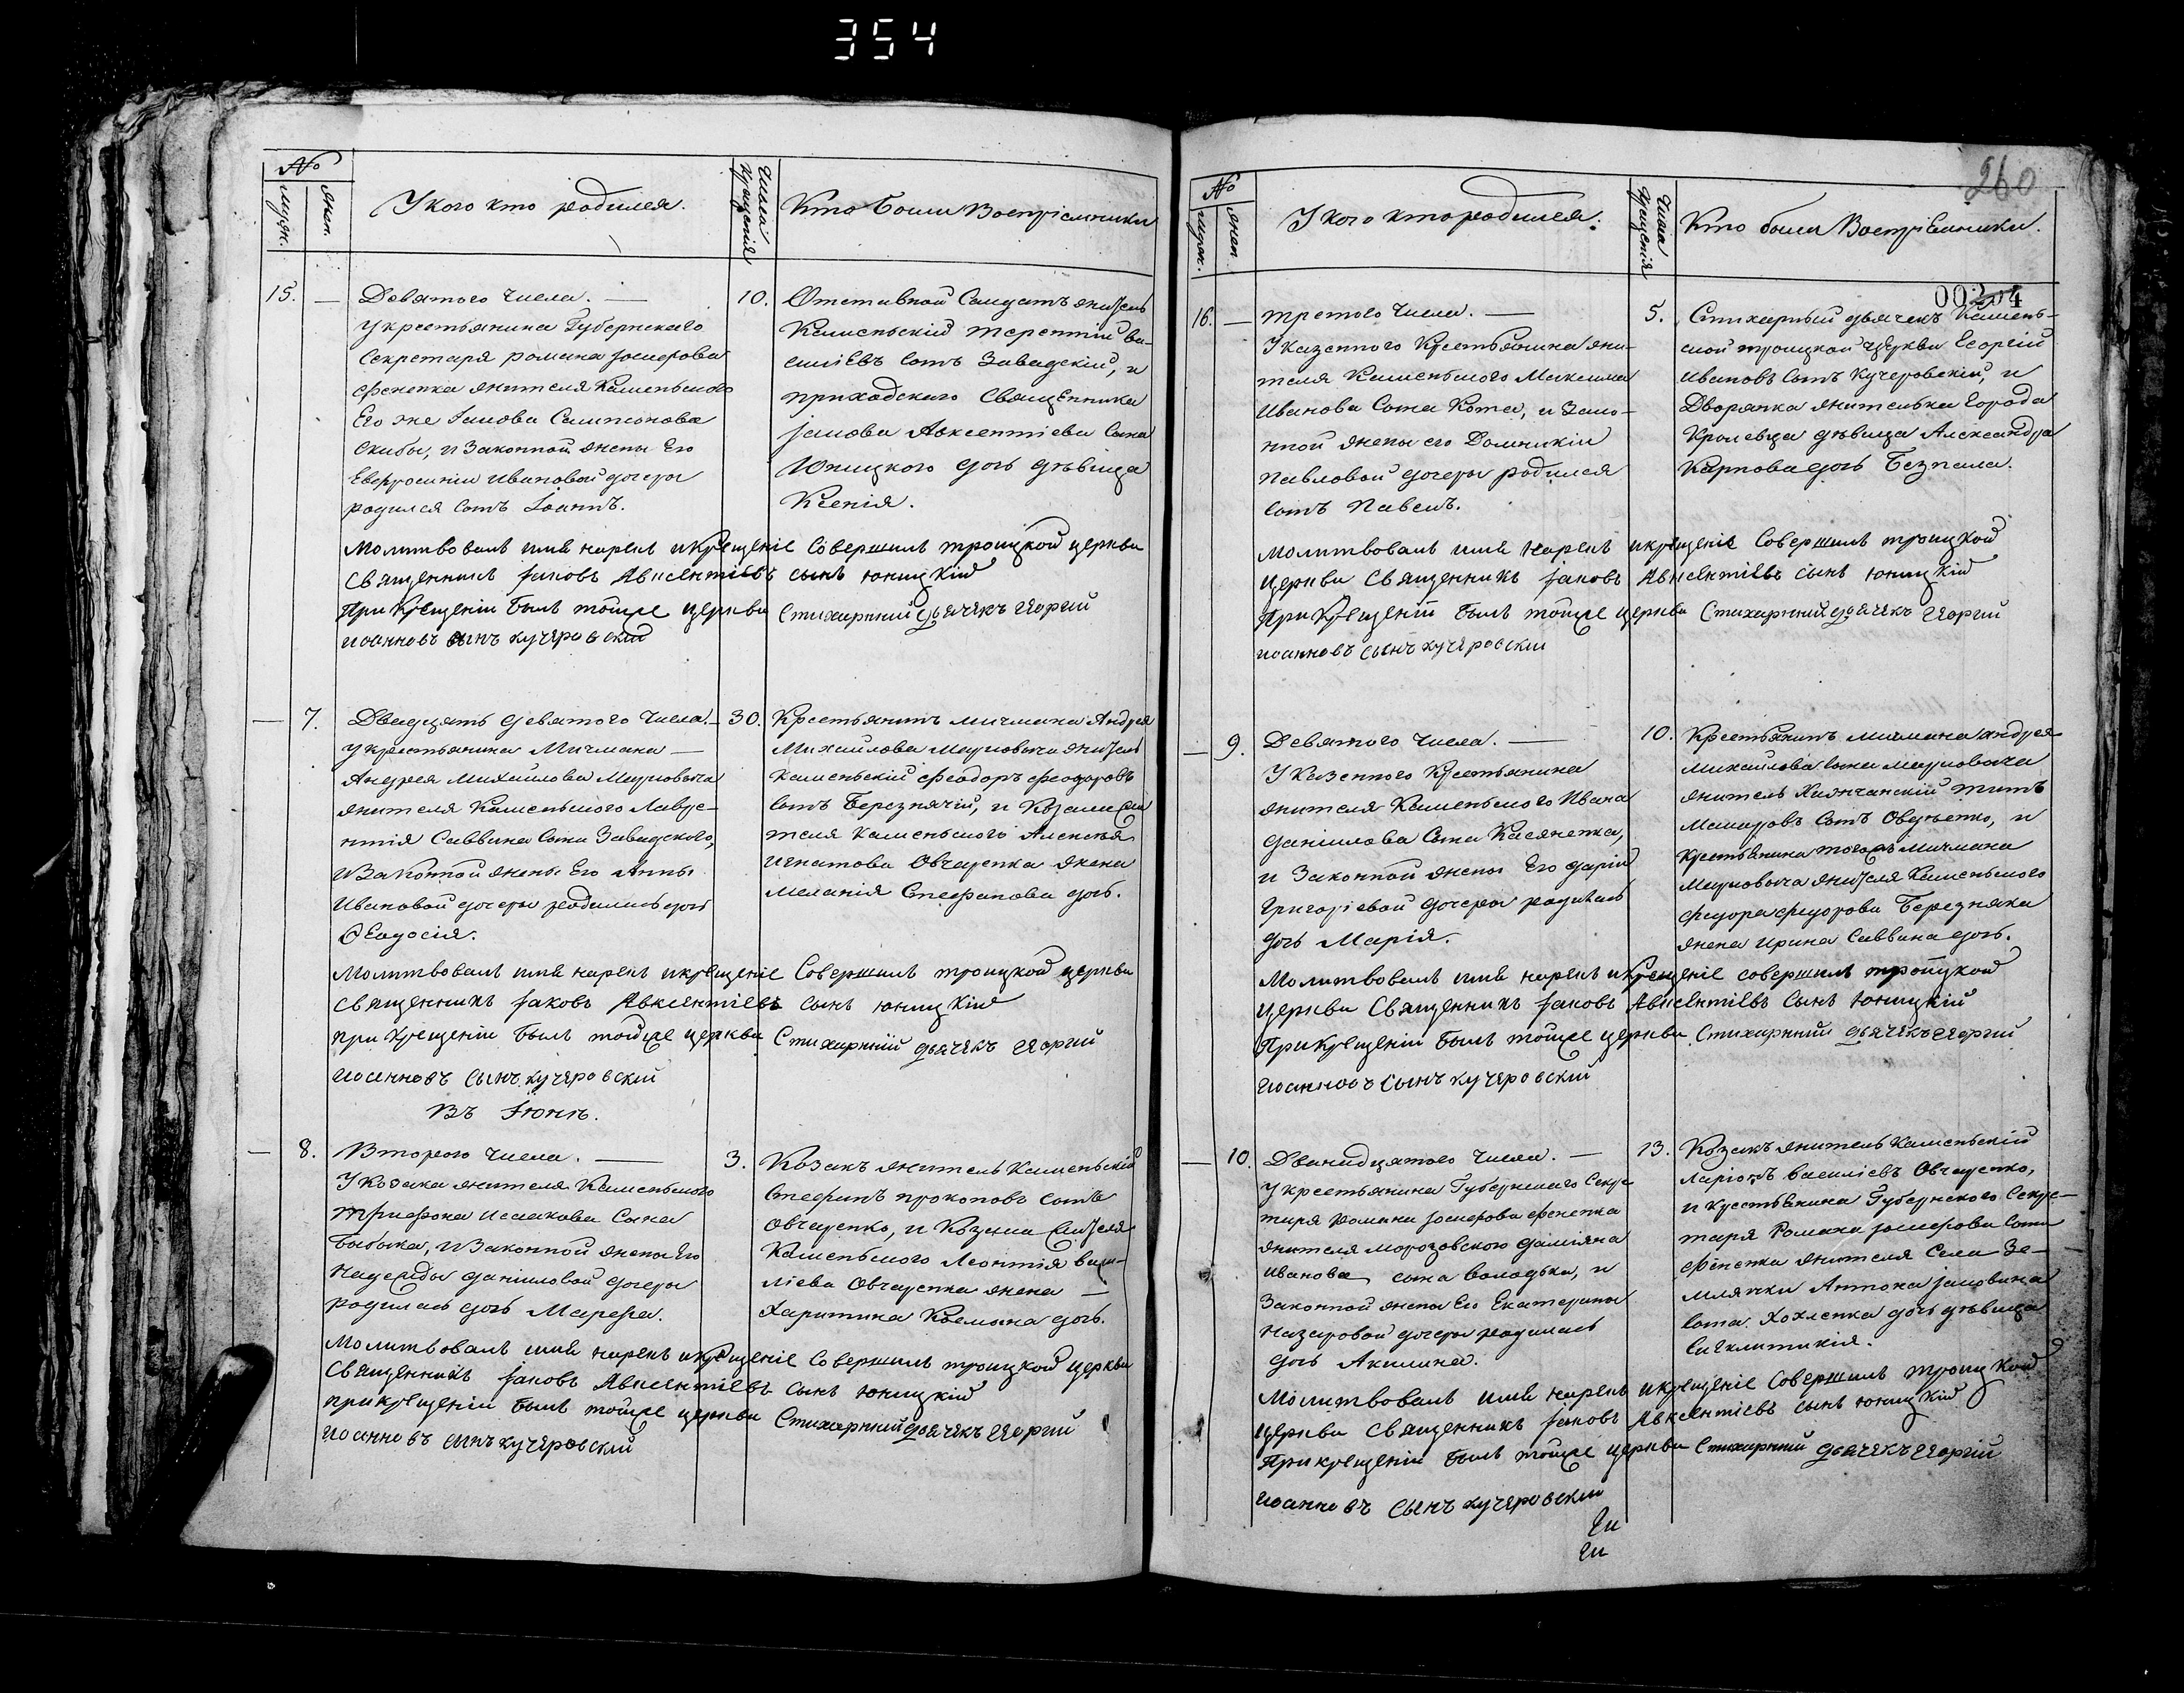 354
№
мужж.
жен.
У кого кто родился.
Числа Крещенія
Кто были Воспріемники
15.
Девятого Числа.
У крестьянина Губернскаго
Секретаря романа Іосифова
Фененка жителя Каменьского
Его же Іакова Сампсонова
Скибы, и Законной жены Его
Евфросиніи Ивановой дочеры
родился Сынъ Іоаннъ.
10.
Отставной Солдатъ житель
Каменьскій Терентий ва-
силіевъ Сынъ Завадскій, и
приходского Священника
Іакова Авксентіева Сына
Юницкого дочь дѣвица
Ксенія.
Молитвовалъ имя нарекъ и крещеніе Совершилъ троицкой церкви
Священникъ Іаковъ Авксентіевъ сынъ Юницкій
При Крещеніи былъ тойже церкви Стихарный дьячекъ Георгий
иоанновъ сынъ кучеровский
7.
Двадцять девятого Числа.
У крестьянина Мичмана
Андрея Михайлова Марковича
жителя Каменьского Лавре-
нтія Саввина Сына Завадского,
и Законной жены Его Анны
Ивановой дочеры родилась дочь
Ѳеодосія.
30.
Крестьянинъ мичмана Андрея
Михайлова Марковича житель
Каменьскій Феодоръ Феодоровъ
Сынъ Березнячій, и Козака жи
теля Каменьского Алексея
Игнатова Овчаренка жена
Меланія Стефанова дочь.
Молитвовалъ имя нарекъ и крещеніе Совершилъ троицкой церкви
Священникъ Іаковъ Авксентіевъ сынъ Юницкій
при Крещеніи былъ тойже церкви Стихарний дьячекъ Георгий
иоанновъ Сынъ кучеровский
Въ Іюнѣ.
8.
Второго Числа.
У Козака жителя Каменьского
Трифона Исаакова Сына
Бабака, и Законной жены Его
Надежды Даніиловой дочеры
родилась дочь Марфа.
3.
Козакъ житель Каменьскій
Стефанъ прокоповъ Сынъ
Овчаренко, и Козака жителя
Каменьского Леонтія васи-
ліева Овчаренка жена
Харитина Косьмина дочь.
Молитвовалъ имя нарекъ и крещеніе Совершилъ троицкой церкви
Священникъ Іаковъ Авксентіевъ сынъ Юницкій
при крещеніи былъ тойже церкви Стихарний дьячекъ Георгий
иоанновъ Сынъ кучеровский
260
№
мужж.
жен.
У кого кто родился.
Числа Крещенія
Кто были Воспріемники.
00204
16.
Третого Числа.
У Казенного Крестьянина жи-
теля Каменьского Максима
Иванова Сына Кота, и Зако-
нной жены его Домникіи
Павловой дочеры родился
Сынъ Павелъ.
5.
Стихарный дьячекъ Камень-
ской троицкой Церкви Георгій
Ивановъ Сынъ Кучеровскій, и
Дворянка жителька Города
Кролевца дѣвица Александра
Карпова дочь Безпала.
Молитвовалъ имя нарекъ и крещеніе Совершилъ троицкой
Церкви Священникъ Іаковъ Авксентіевъ сынъ Юницкій
При Крещеній былъ тойже церкви Стихарний дьячекъ Георгий
иоанновъ Сынъ кучеровский
9.
Девятого Числа.
У Казенного Крестьянина
жителя Каменьского Ивана
Даніилова Сына Касяненка,
и Законной жены Его Даріи
Григоріевой дочеры родилась
дочь Марія.
10.
Крестьянинъ мичмана Андрея
Михайлова Сына Марковича
житель Титъ
Сынъ Овдѣенко, и
Крестьянина тогожъ Мичмана
Марковича жителя Каменьского
Федора Федорова Березняка
жена Ирина Саввина дочь.
Молитвовалъ имя нарекъ и крещеніе совершилъ троицкой
церкви Священникъ Іаковъ Авксентіевъ Сынъ Юницкій
При Крещеніи былъ тойже церкви Стихарний дьячекъ Георгий
иоанновъ Сынъ кучеровский
10.
Дванадцятого Числа.
У крестьянина Губернскаго Секре-
таря Романа Іосифова Фененка
жителя Морозовского Даміяна
Иванова сына Володька, и
Законной жены Его Екатерины
Назаровой дочеры родилась
дочь Акилина.
13.
Козакъ житель Каменьскій
Ларіонъ Василіевъ Овчаренко,
и Крестьянина Губернского Секре-
таря Романа Іосифова Сына
Фененка жителя Села Зе-
млянки Антона Іаковина
Сына Хохленка дочь дѣвица
Сигклитикія.
Молитвовалъ имя нарекъ и крещеніе Совершилъ троицкой
церкви Священникъ Іаковъ Авксентіевъ Сынъ Юницкій
При крещеніи былъ тойже церкви Стихарний дьячекъ Георгій
иоанновъ Сынъ кучеровский